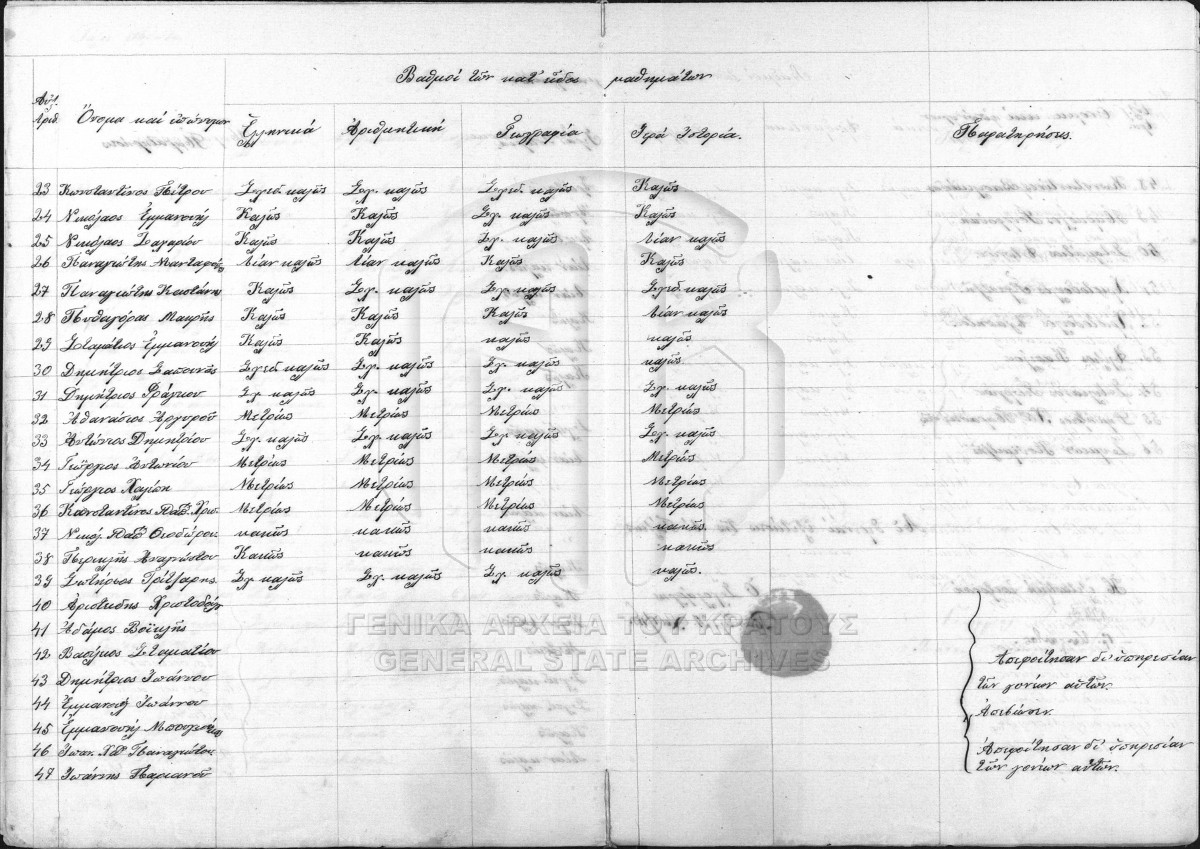 Βαθμοὶ τῶν κατ' εἶδος μαθημάτων
Αὔξ. Ἀριθ. Ὄνομα καὶ ἐπώνυμον Ἑλληνικά Ἀριθμητική Γεωγραφία Ἱερὰ Ἱστορία. Παρατηρήσεις.
23 Κωνσταντῖνος Πέτρου Σχεδ. καλῶς Σχ. καλῶς Σχεδ. καλῶς Καλῶς
24 Νικόλαος Ἐμμανουήλ Καλῶς Καλῶς Σχ. καλῶς Καλῶς
25 Νικόλαος Καλῶς Καλῶς Σχ. καλῶς λίαν καλῶς
26 Παναγιώτης λίαν καλῶς λίαν καλῶς Καλῶς Καλῶς
27 Παναγιώτης Καστάνης Καλῶς Σχ. καλῶς Σχ. καλῶς Σχεδ. καλῶς
28 Πυθαγόρας Μακρῆς Καλῶς Καλῶς Καλῶς λίαν καλῶς
29 Σταμάτιος Ἐμμανουήλ Καλῶς Καλῶς καλῶς καλῶς
30 Δημήτριος Σχεδ. καλῶς Σχ. καλῶς Σχ. καλῶς καλῶς
31 Δημήτριος Φράγκου Σχ καλῶς Σχ. καλῶς Σχ. καλῶς Σχ. καλῶς
32 Ἀθανάσιος Ἀργυροῦ Μετρίως Μετρίως Μετρίως Μετρίως
33 Ἀντώνιος Δημητρίου Σχ. καλῶς Σχ. καλῶς Σχ. καλῶς Σχ. καλῶς
34 Γεώργιος Ἀντωνίου Μετρίως Μετρίως Μετρίως Μετρίως
35 Γεώργιος Μετρίως Μετρίως Μετρίως Μετρίως
36 Κωνσταντῖνος Παπ. Χρισ. Μετρίως Μετρίως Μετρίως Μετρίως
37 Νικόλ. Παπ. Θεοδώρου κακῶς κακῶς κακῶς κακῶς.
38 Περικλῆς Ἀναγνώστου Κακῶς κακῶς κακῶς κακῶς
39 Σωτήριος Σχ καλῶς Σχ. καλῶς Σχ. καλῶς καλῶς.
40 Ἀριστείδης Χριστοδούλ
41 Ἀδάμος
42 Βασίλειος Σταματίου
43 Δημήτριος Ἰωάννου
44 Ἐμμανουήλ Ἰωάννου
45 Ἐμμανουήλ
46 Ἰωάν. Χ Παναγιώτου
47 Ἰωάννης Παριανοῦ
Ἀπεφοίτησαν δι' ὑπηρεσίαν
τῶν γονέων αὐτῶν.
Ἀπεβίωσεν.
Ἀπεφοίτησαν δι' ὑπηρεσίαν
τῶν γονέων αὐτῶν.
ΓΕΝΙΚΑ ΑΡΧΕΙΑ ΤΟΥ ΚΡΑΤΟΥΣ
GENERAL STATE ARCHIVES